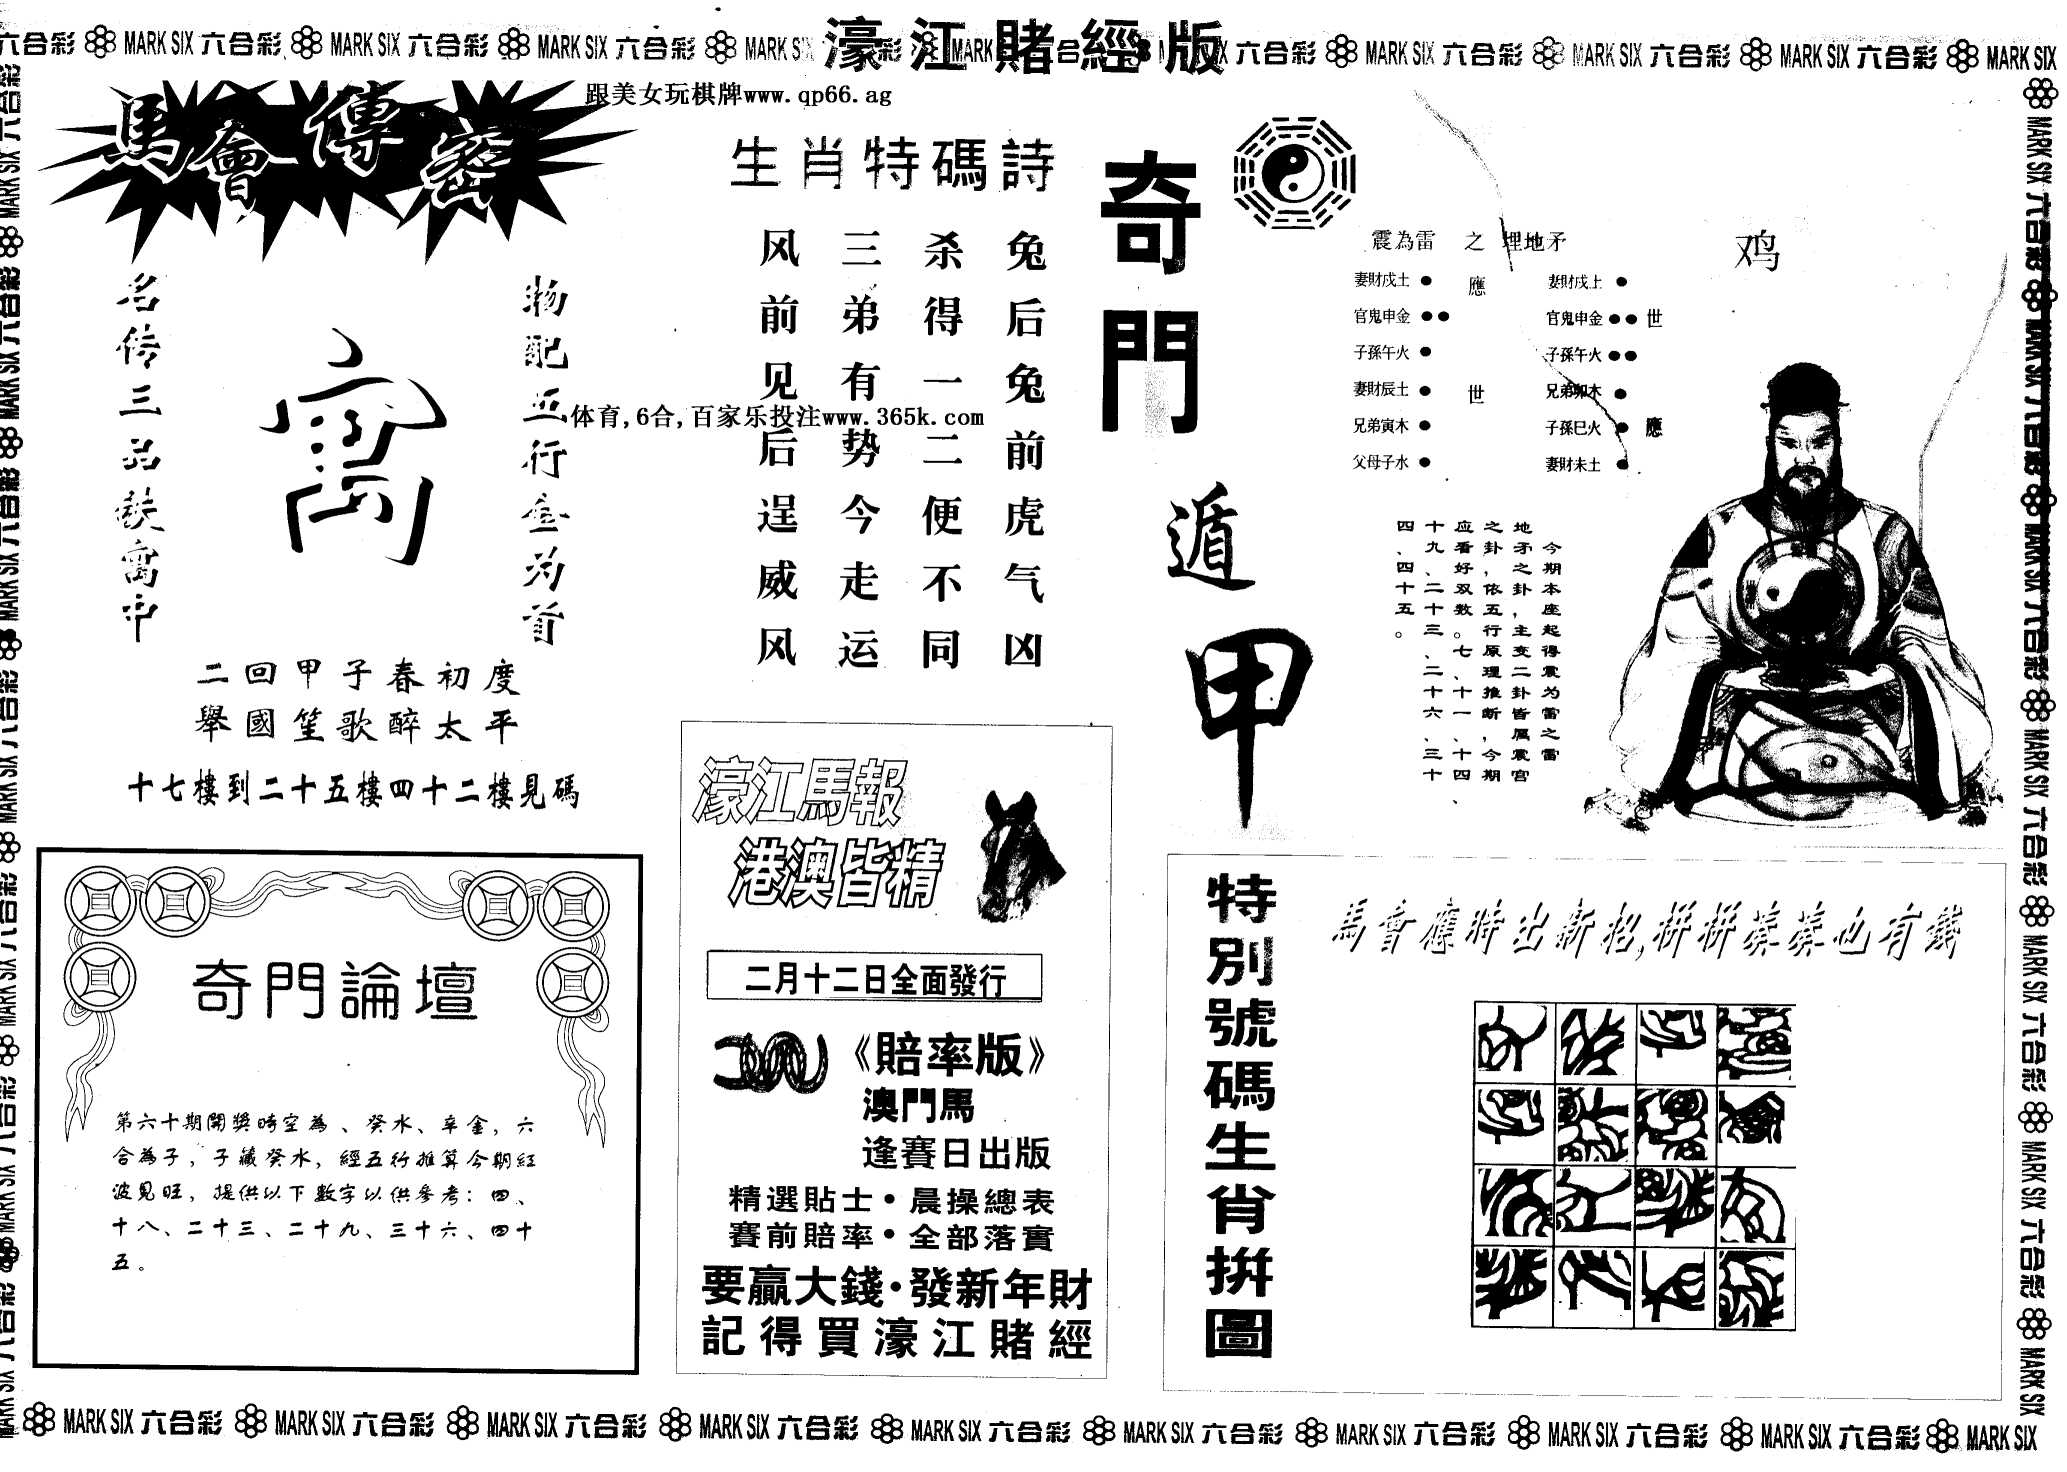 六合彩 MARK SIX 六合彩 MARK SIX 六合彩 MARK SIX 六合彩 MARK SIX
濠江賭經版
六合彩 MARK SIX 六合彩 MARK SIX 六合彩 MARK SIX 六合彩 MARK SIX
跟美女玩棋牌www.qp66.ag
馬會傳密
物配五行金为首
名传三品疾寓中
寓
二回甲子春初度
舉國笙歌醉太平
十七樓到二十五樓四十二樓見碼
生肖特碼詩
兔后兔前虎气凶
杀得一二便不同
三弟有势今走运
风前见后逞威风
体育,6合,百家乐投注www.365k.com
奇門遁甲
震為雷 之 埋地矛
鸡
妻財戌土 應 妻財戌上
官鬼申金 官鬼申金 世
子孫午火 子孫午火
妻財辰土 世 兄弟卯木
兄弟寅木 子孫巳火 應
父母子水 妻財未土
今期本座起得震为雷之雷
地矛之卦，主变二卦皆属震宫
之卦，依五行原理推断，今期
应看好双数。七、十一、十四、
十九、二十三、二十六、三十
四、四十五。
奇門論壇
第六十期開獎時空為、癸水、辛金，六
合為子，子藏癸水，經五行推算今期紅
波見旺，提供以下數字以供參考：四、
十八、二十三、二十九、三十六、四十
五。
濠江馬報
港澳皆精
二月十二日全面發行
《賠率版》
澳門馬
逢賽日出版
精選貼士·晨操總表
賽前賠率·全部落實
要贏大錢·發新年財
記得買濠江賭經
特別號碼生肖拼圖
馬會應時出新招,拼拼湊湊也有錢
MARK SIX 六合彩 MARK SIX 六合彩 MARK SIX 六合彩 MARK SIX 六合彩 MARK SIX 六合彩 MARK SIX 六合彩 MARK SIX 六合彩 MARK SIX 六合彩 MARK SIX 六合彩 MARK SIX